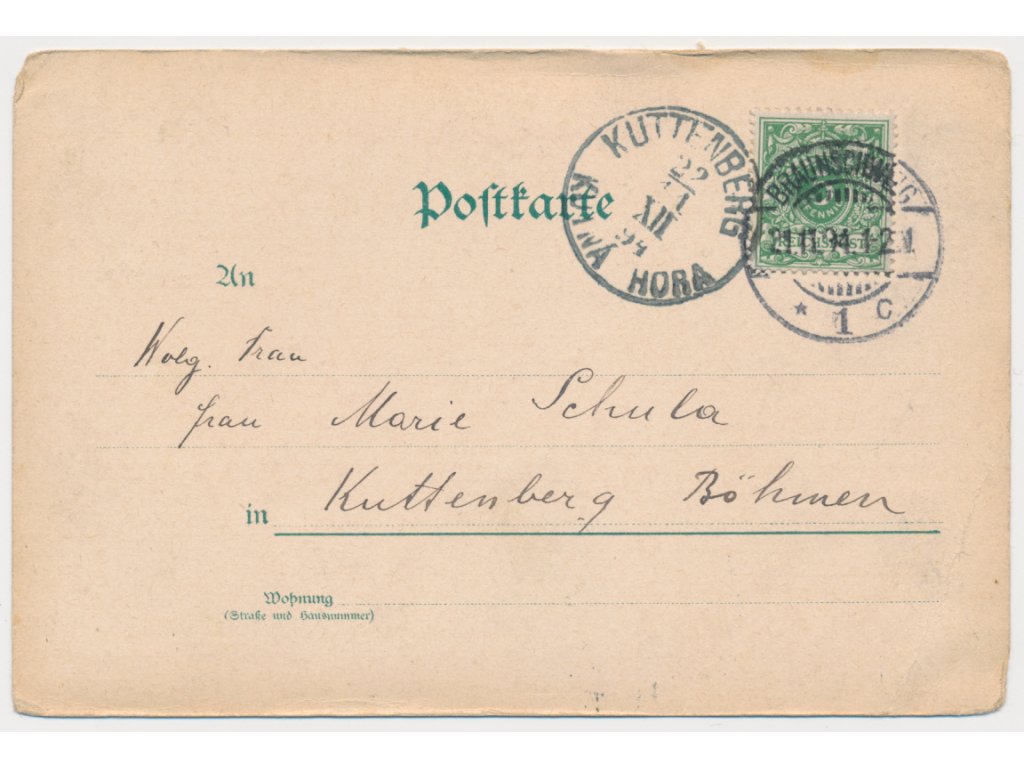 Postkarte
KUTTENBERG
22
XII
94
KUTNÁ HORA
BRAUNSCHWEIG
21.11.94.1-2N
* 1 C.
PFENNIG
REICHSPOST
An
Wolg. Frau
frau Marie Schula
in Kuttenberg Böhmen
Wohnung
(Straße und Hausnummer)